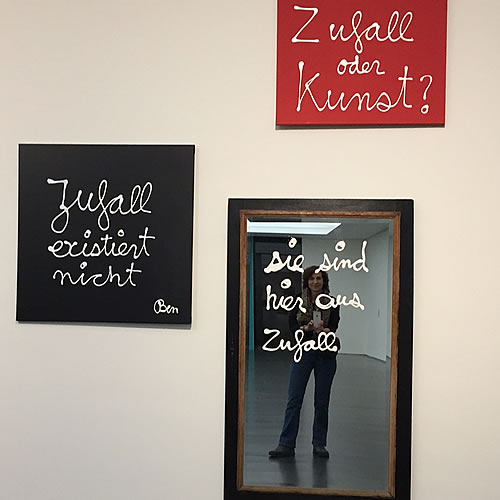 Zufall
oder
Kunst?
Zufall
existiert
nicht
Ben
sie sind
hier aus
Zufall